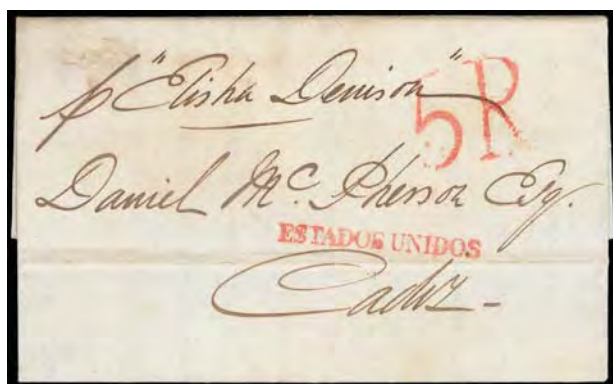 p "Elisha Denison"
5R
Daniel Mc. Pherson Esq.
ESTADOS UNIDOS
Cadiz -